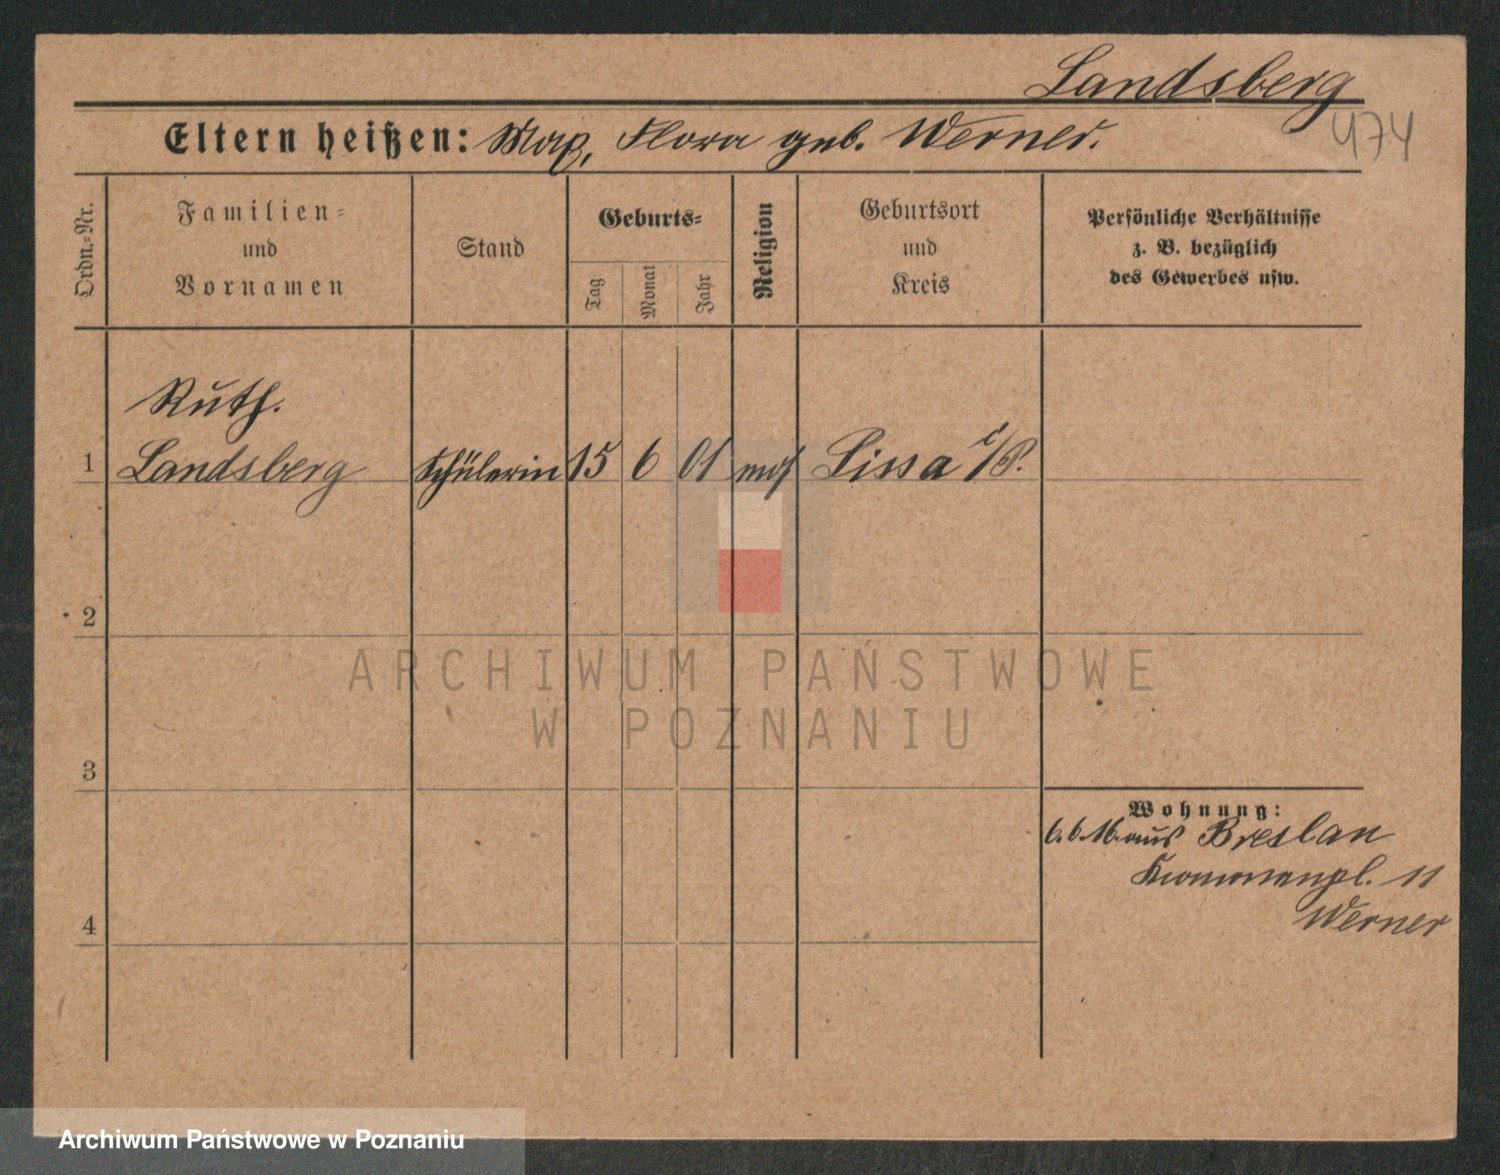 Landsberg
474
Eltern heißen: Max, Flora geb. Werner.
Ordn.-Nr.
Familien-
und
Vornamen
Stand
Geburts-
Tag
Monat
Jahr
Religion
Geburtsort
und
Kreis
Persönliche Verhältnisse
z. B. bezüglich
des Gewerbes usw.
Ruth.
1 Landsberg Schülerin 15 6 01 mos Lissa i/P.
2
3
4
Wohnung:
6.6.16 aus Breslau
11
Werner
ARCHIWUM PAŃSTWOWE
W POZNANIU
Archiwum Państwowe w Poznaniu